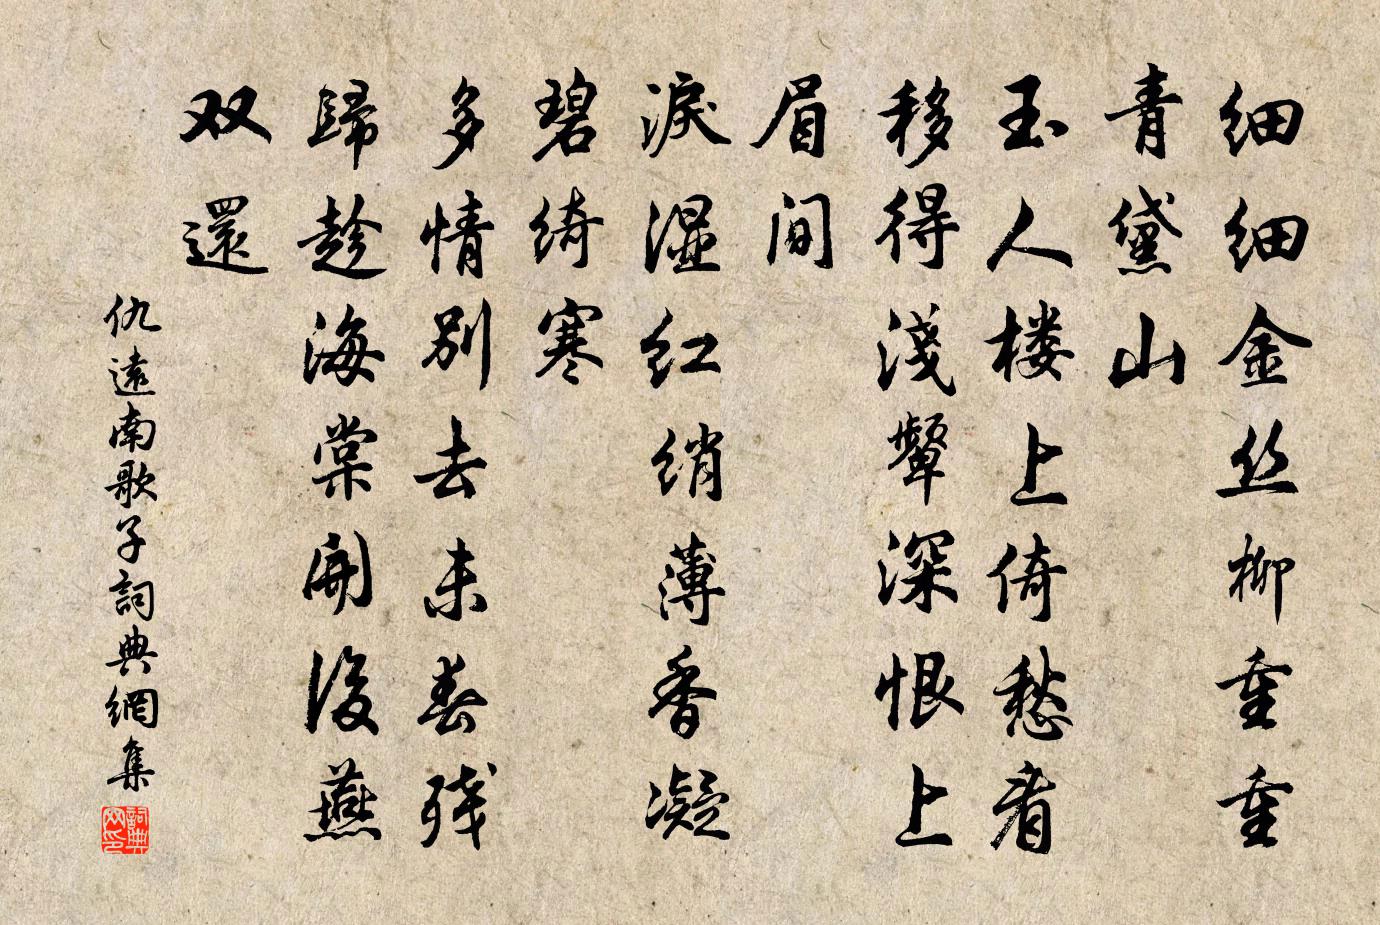 细细金丝柳重重
青黛山
玉人楼上倚愁看
移得浅颦深恨上
眉间
淚湿红绡薄香凝
碧绮寒
多情别去未春残
歸趁海棠開後燕
双還
仇遠南歌子詞典網集
詞典網印